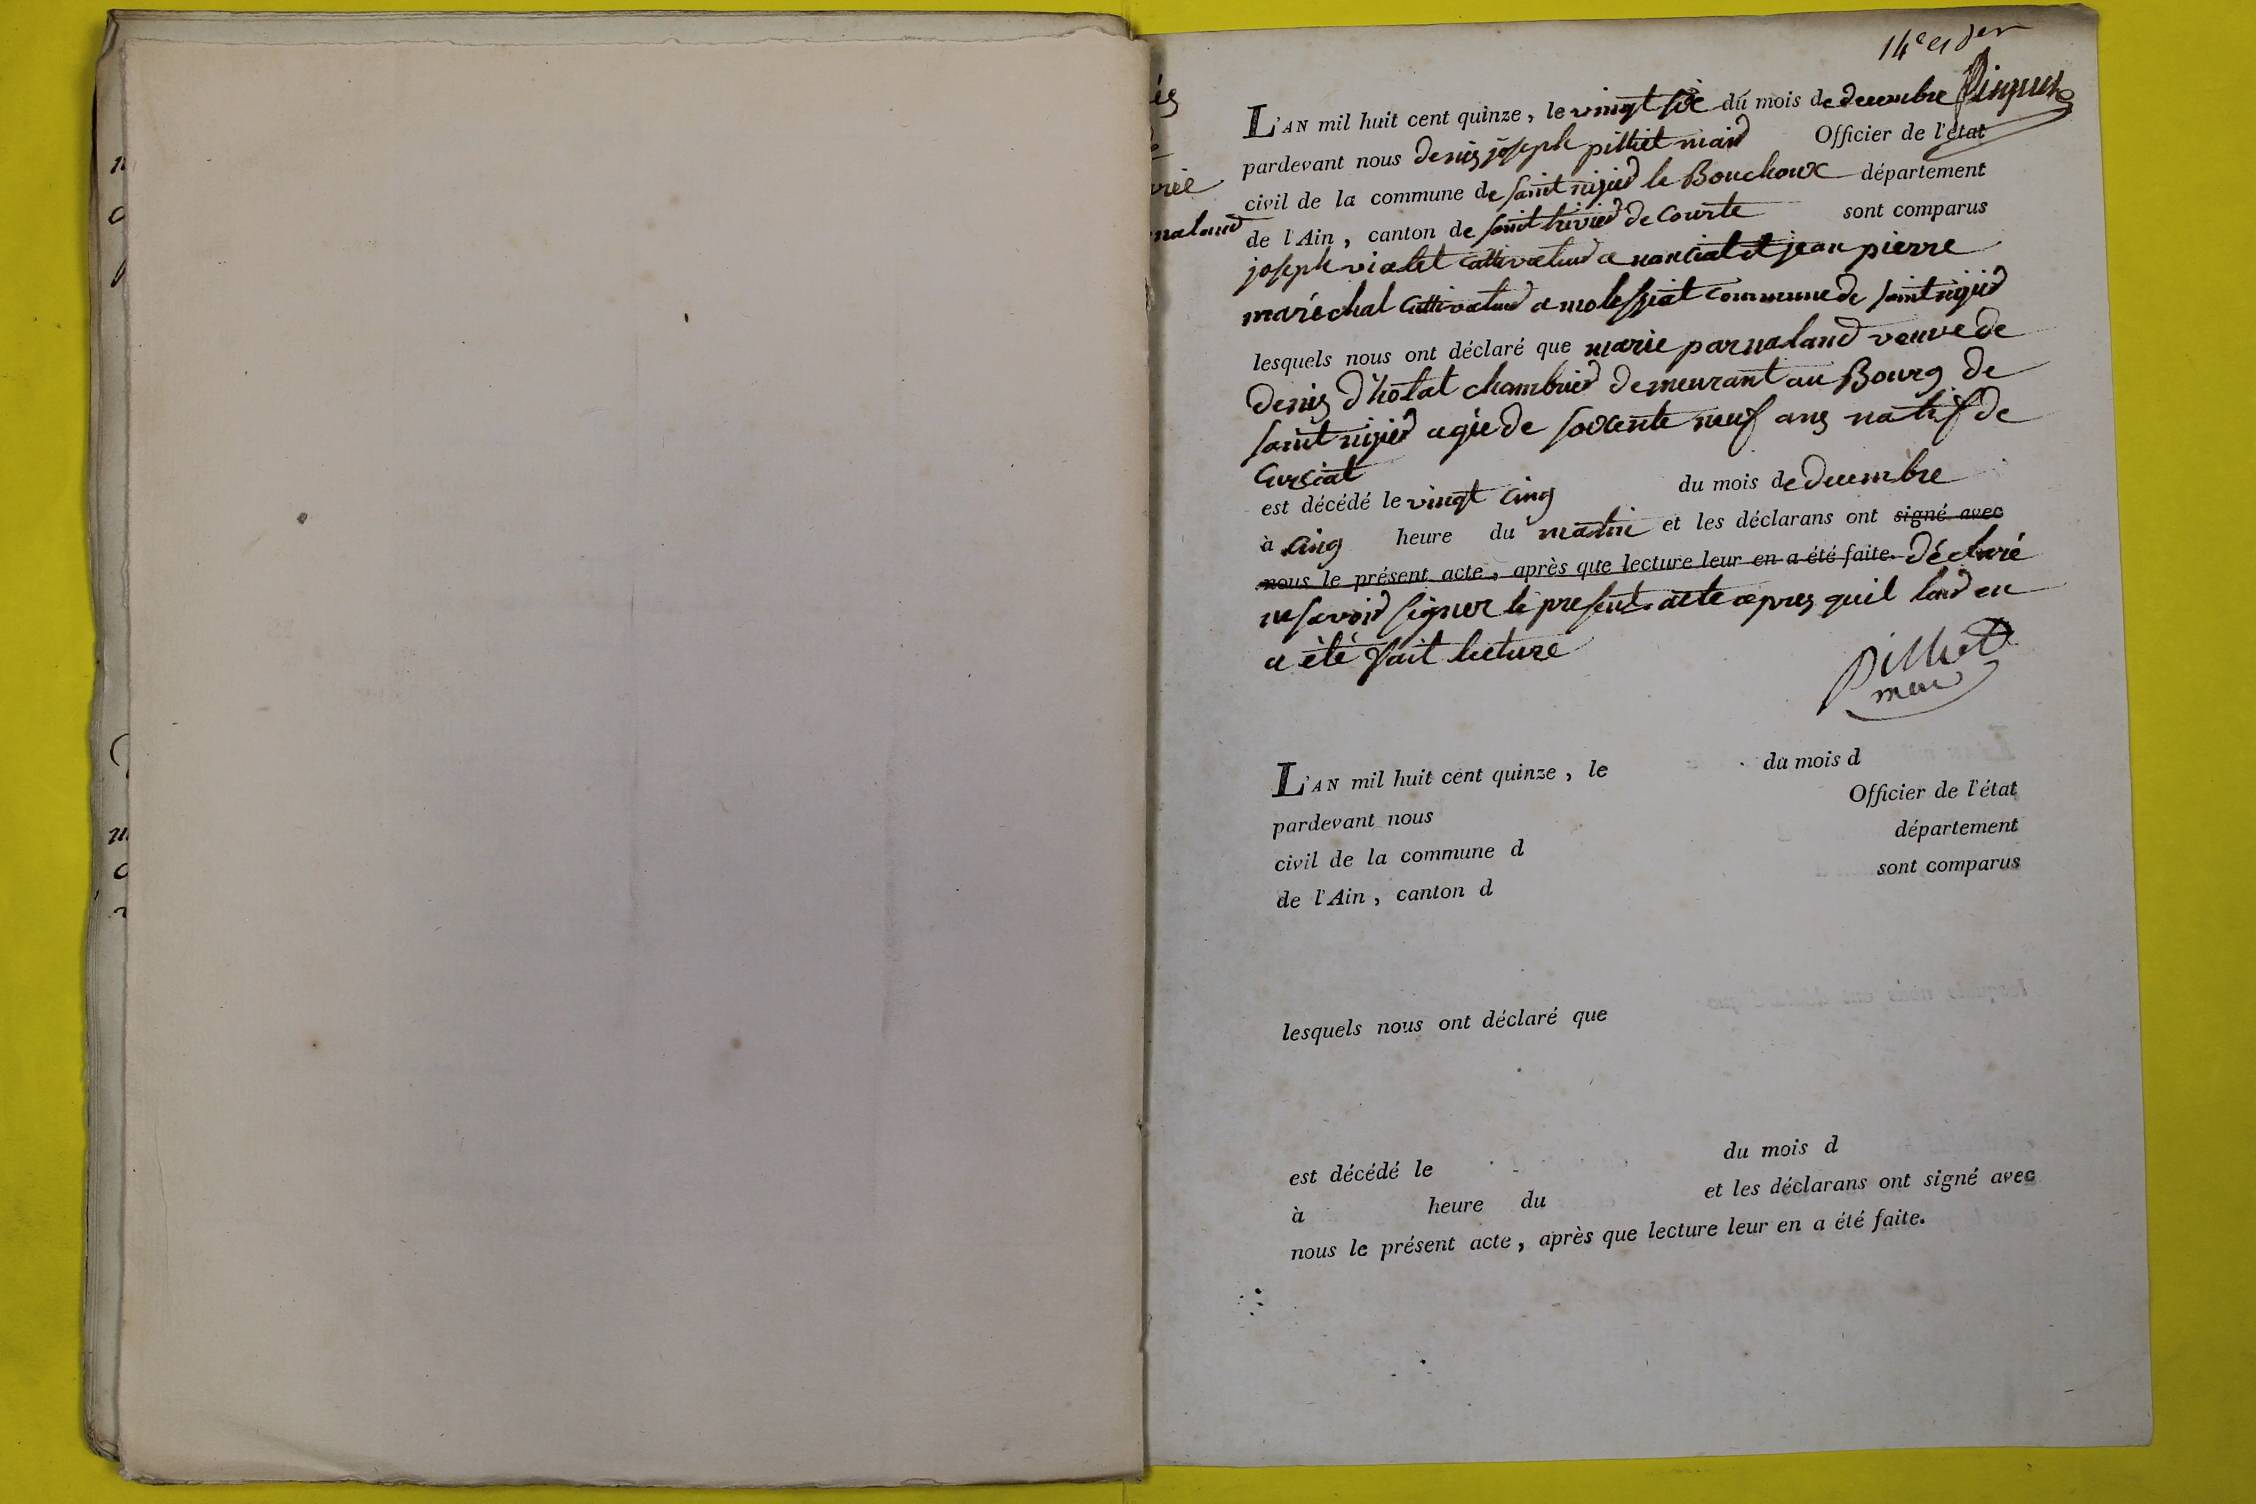 14e et der
L'AN mil huit cent quinze, le vingt six du mois de decembre
pardevant nous denis joseph pilliet maire Officier de l'état
civil de la commune de saint nizier le Bouchoux département
de l'Ain, canton de saint trivier de Courte sont comparus
joseph vialet cultivateur a manciat et jean pierre
maréchal cultivateur a molissiat commune de saint nizier
lesquels nous ont déclaré que marie parnaland veuve de
denis d'hôtat chambrier demeurant au Bourg de
saint nizier agée de soixente neuf ans natif de
Curciat
est décédé le vingt cinq du mois de decembre
à cinq heure du matin et les déclarans ont signé avec
nous le présent acte, après que lecture leur en a été faite. déclaré
ne savoir signer le present acte apres quil leur en
a été fait lecture
Pilliet
maire
L'AN mil huit cent quinze, le du mois d
pardevant nous Officier de l'état
civil de la commune d département
de l'Ain, canton d sont comparus
lesquels nous ont déclaré que
est décédé le du mois d
à heure du et les déclarans ont signé avec
nous le présent acte, après que lecture leur en a été faite.